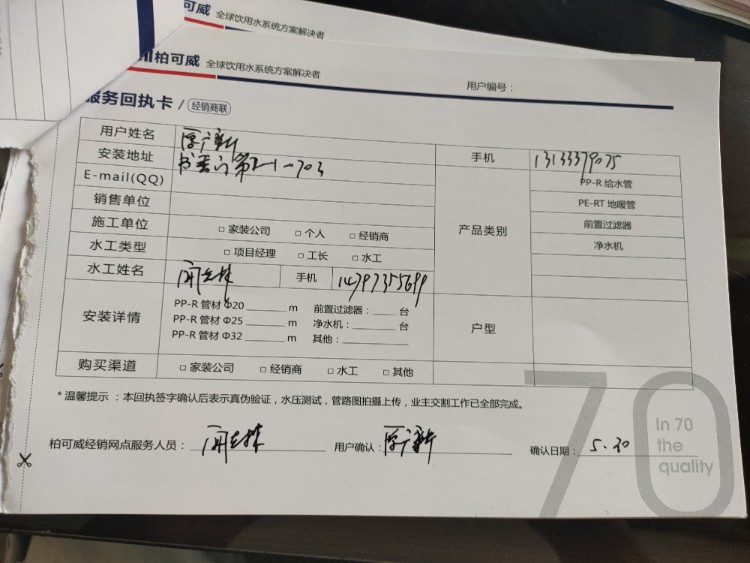 可威 全球饮用水系统方案解决者
柏可威 全球饮用水系统方案解决者
用户编号：
服务回执卡 / 经销商联
用户姓名
安装地址 2-1-703
手机 13133379075
E-mail(QQ)
PP-R 给水管
销售单位
PE-RT 地暖管
施工单位 □ 家装公司 □ 个人 □ 经销商
产品类别
前置过滤器
水工类型 □ 项目经理 □ 工长 □ 水工
净水机
水工姓名 手机 14797355699
安装详情
PP-R 管材 Φ20 m 前置过滤器： 台
PP-R 管材 Φ25 m 净水机： 台
PP-R 管材 Φ32 m 其他：
户型
购买渠道 □ 家装公司 □ 经销商 □ 水工 □ 其他
* 温馨提示：本回执签字确认后表示真伪验证，水压测试，管路图拍摄上传，业主交割工作已全部完成。
柏可威经销网点服务人员： 用户确认： 确认日期： 5.30
70
In 70
the
quality